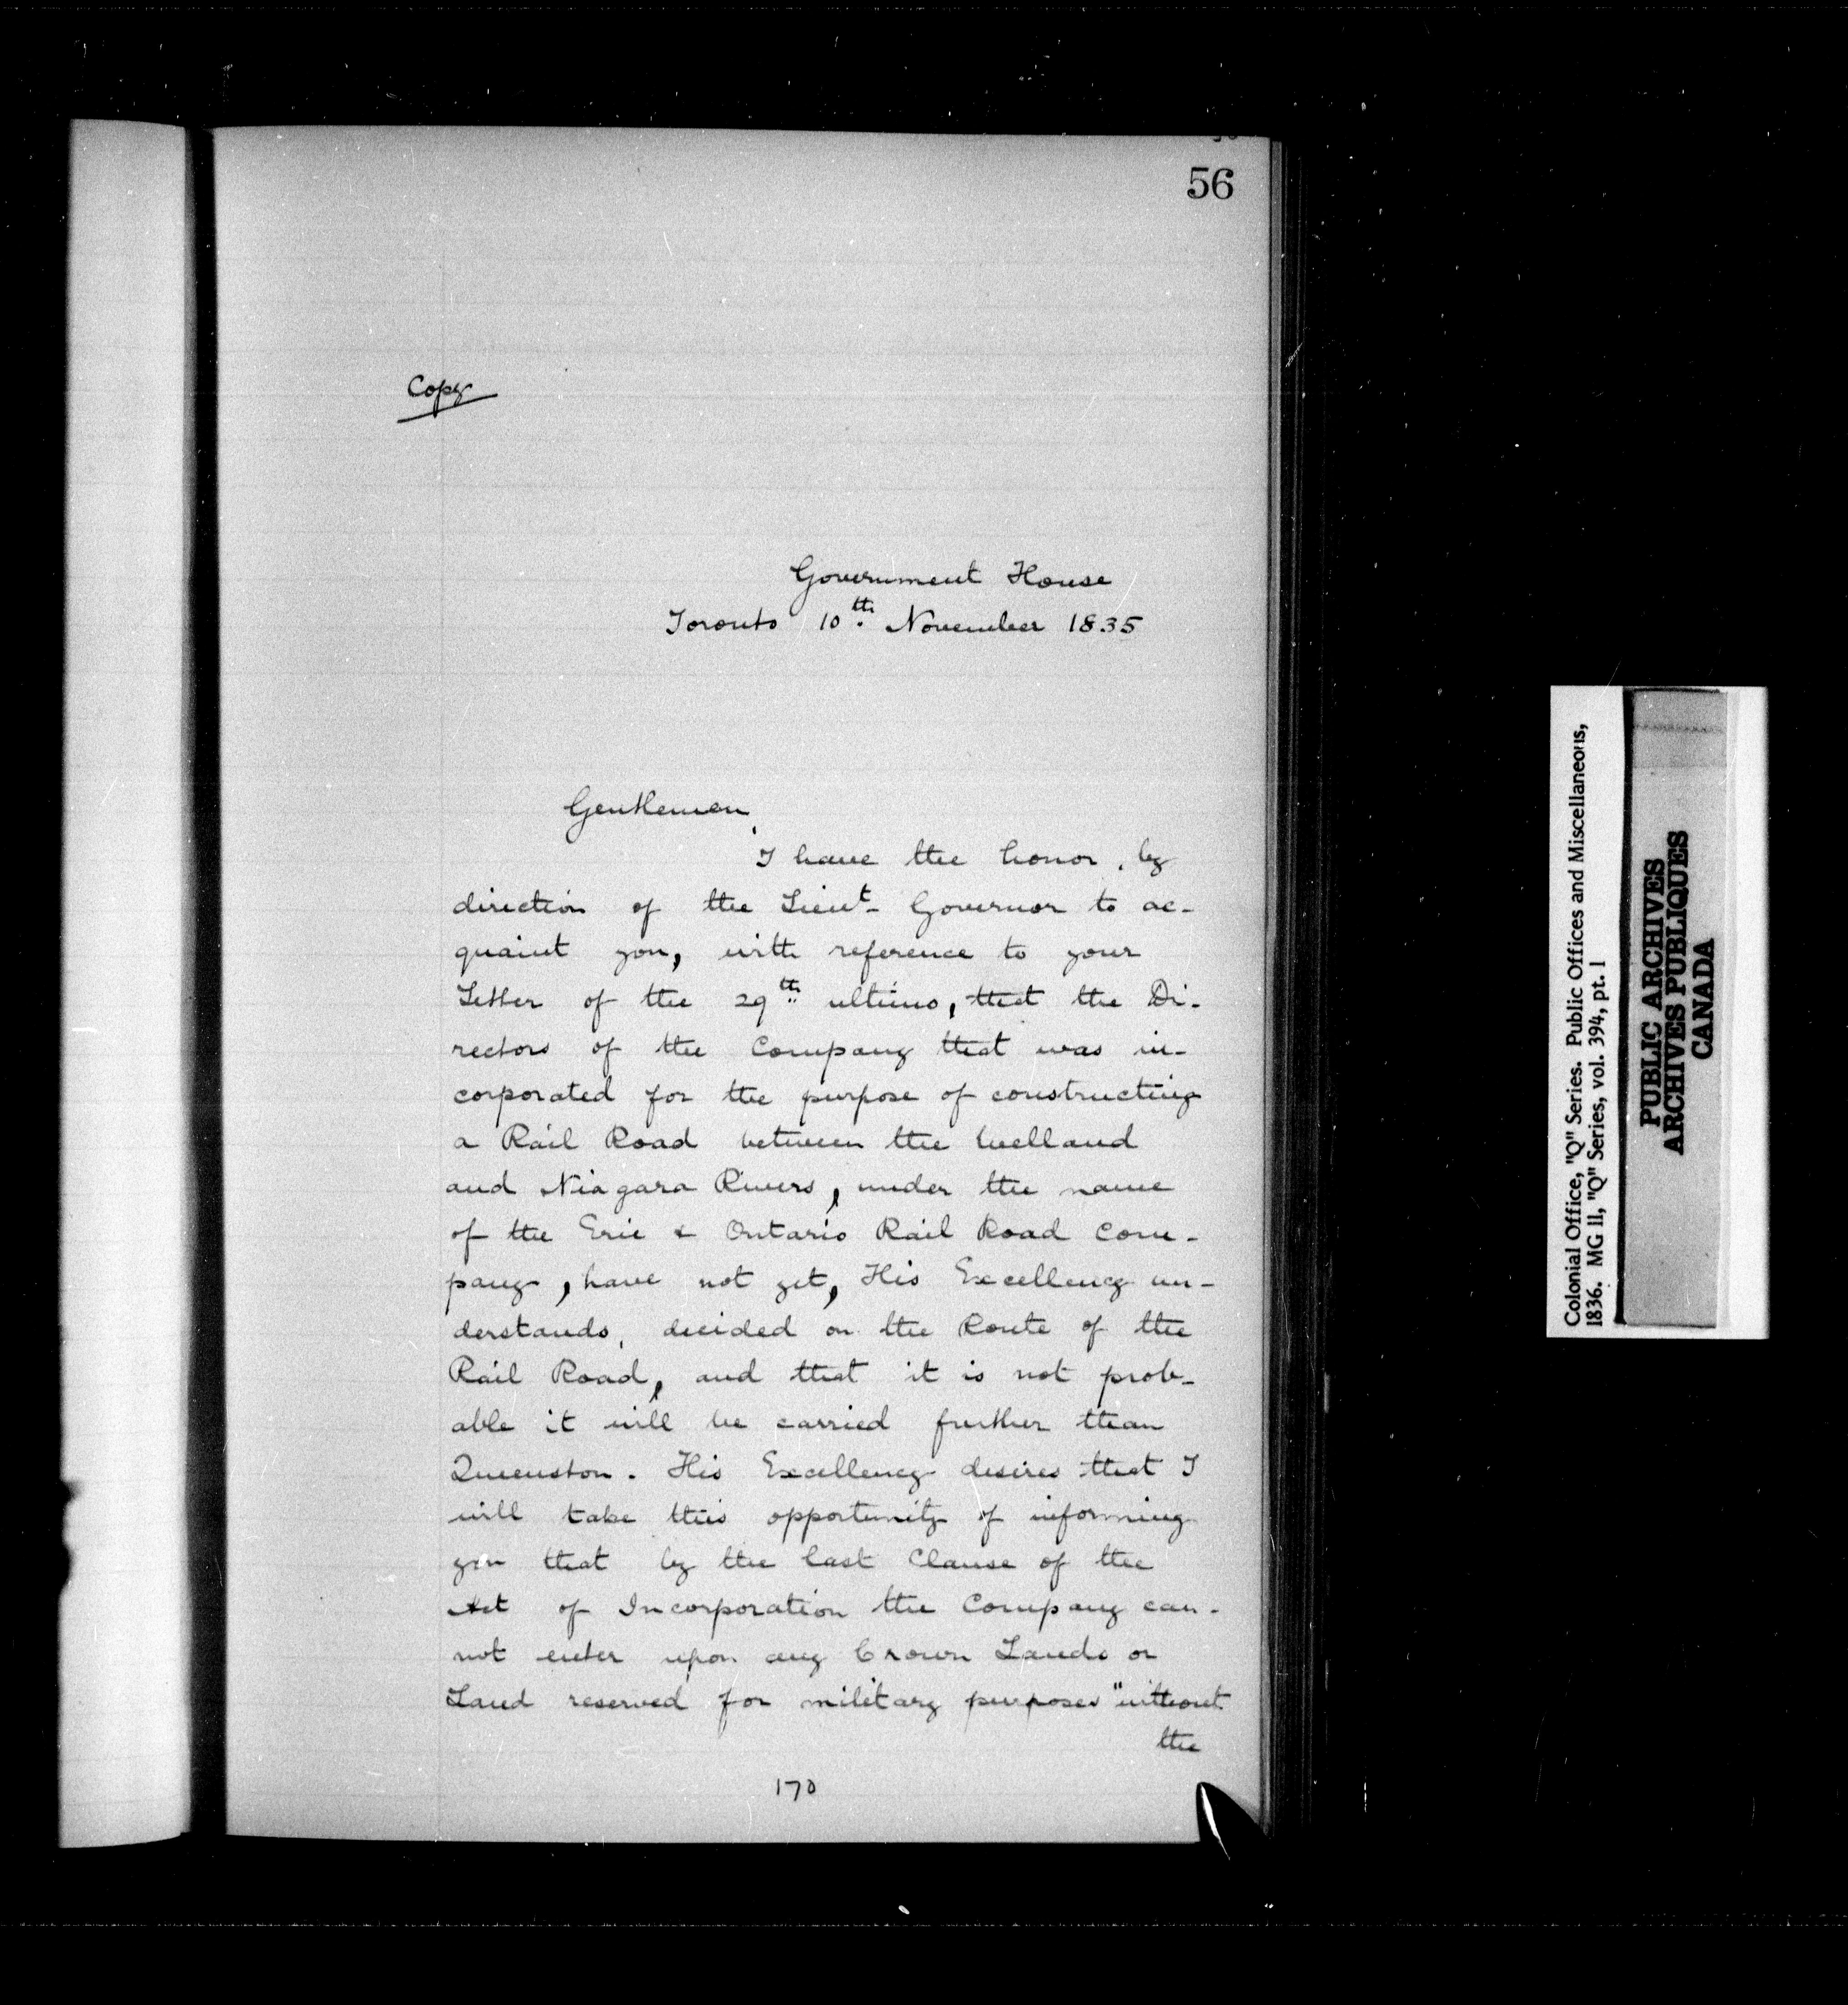 56
Copy
Government House
Toronto 10th November 1835
Gentlemen,
I have the honor, by
direction of the Lieut- Governor to ac-
quaint you, with reference to your
Letter of the 29th ultimo, that the Di-
rectors of the Company that was in-
corporated for the purpose of constructing
a Rail Road between the Welland
and Niagara Rivers, under the name
of the Erie & Ontario Rail Road Com-
pany, have not yet, His Excellency un-
derstands, decided on the Route of the
Rail Road, and that it is not prob-
able it will be carried further than
Queenston. His Excellency desires that I
will take this opportunity of informing
you that by the last Clause of the
Act of Incorporation the Company can-
not enter upon any Crown Lands or
Land reserved for military purposes "without
the
170
Colonial Office, "Q" Series. Public Offices and Miscellaneous,
1836. MG 11, "Q" Series, vol. 394, pt. 1
PUBLIC ARCHIVES
ARCHIVES PUBLIQUES
CANADA